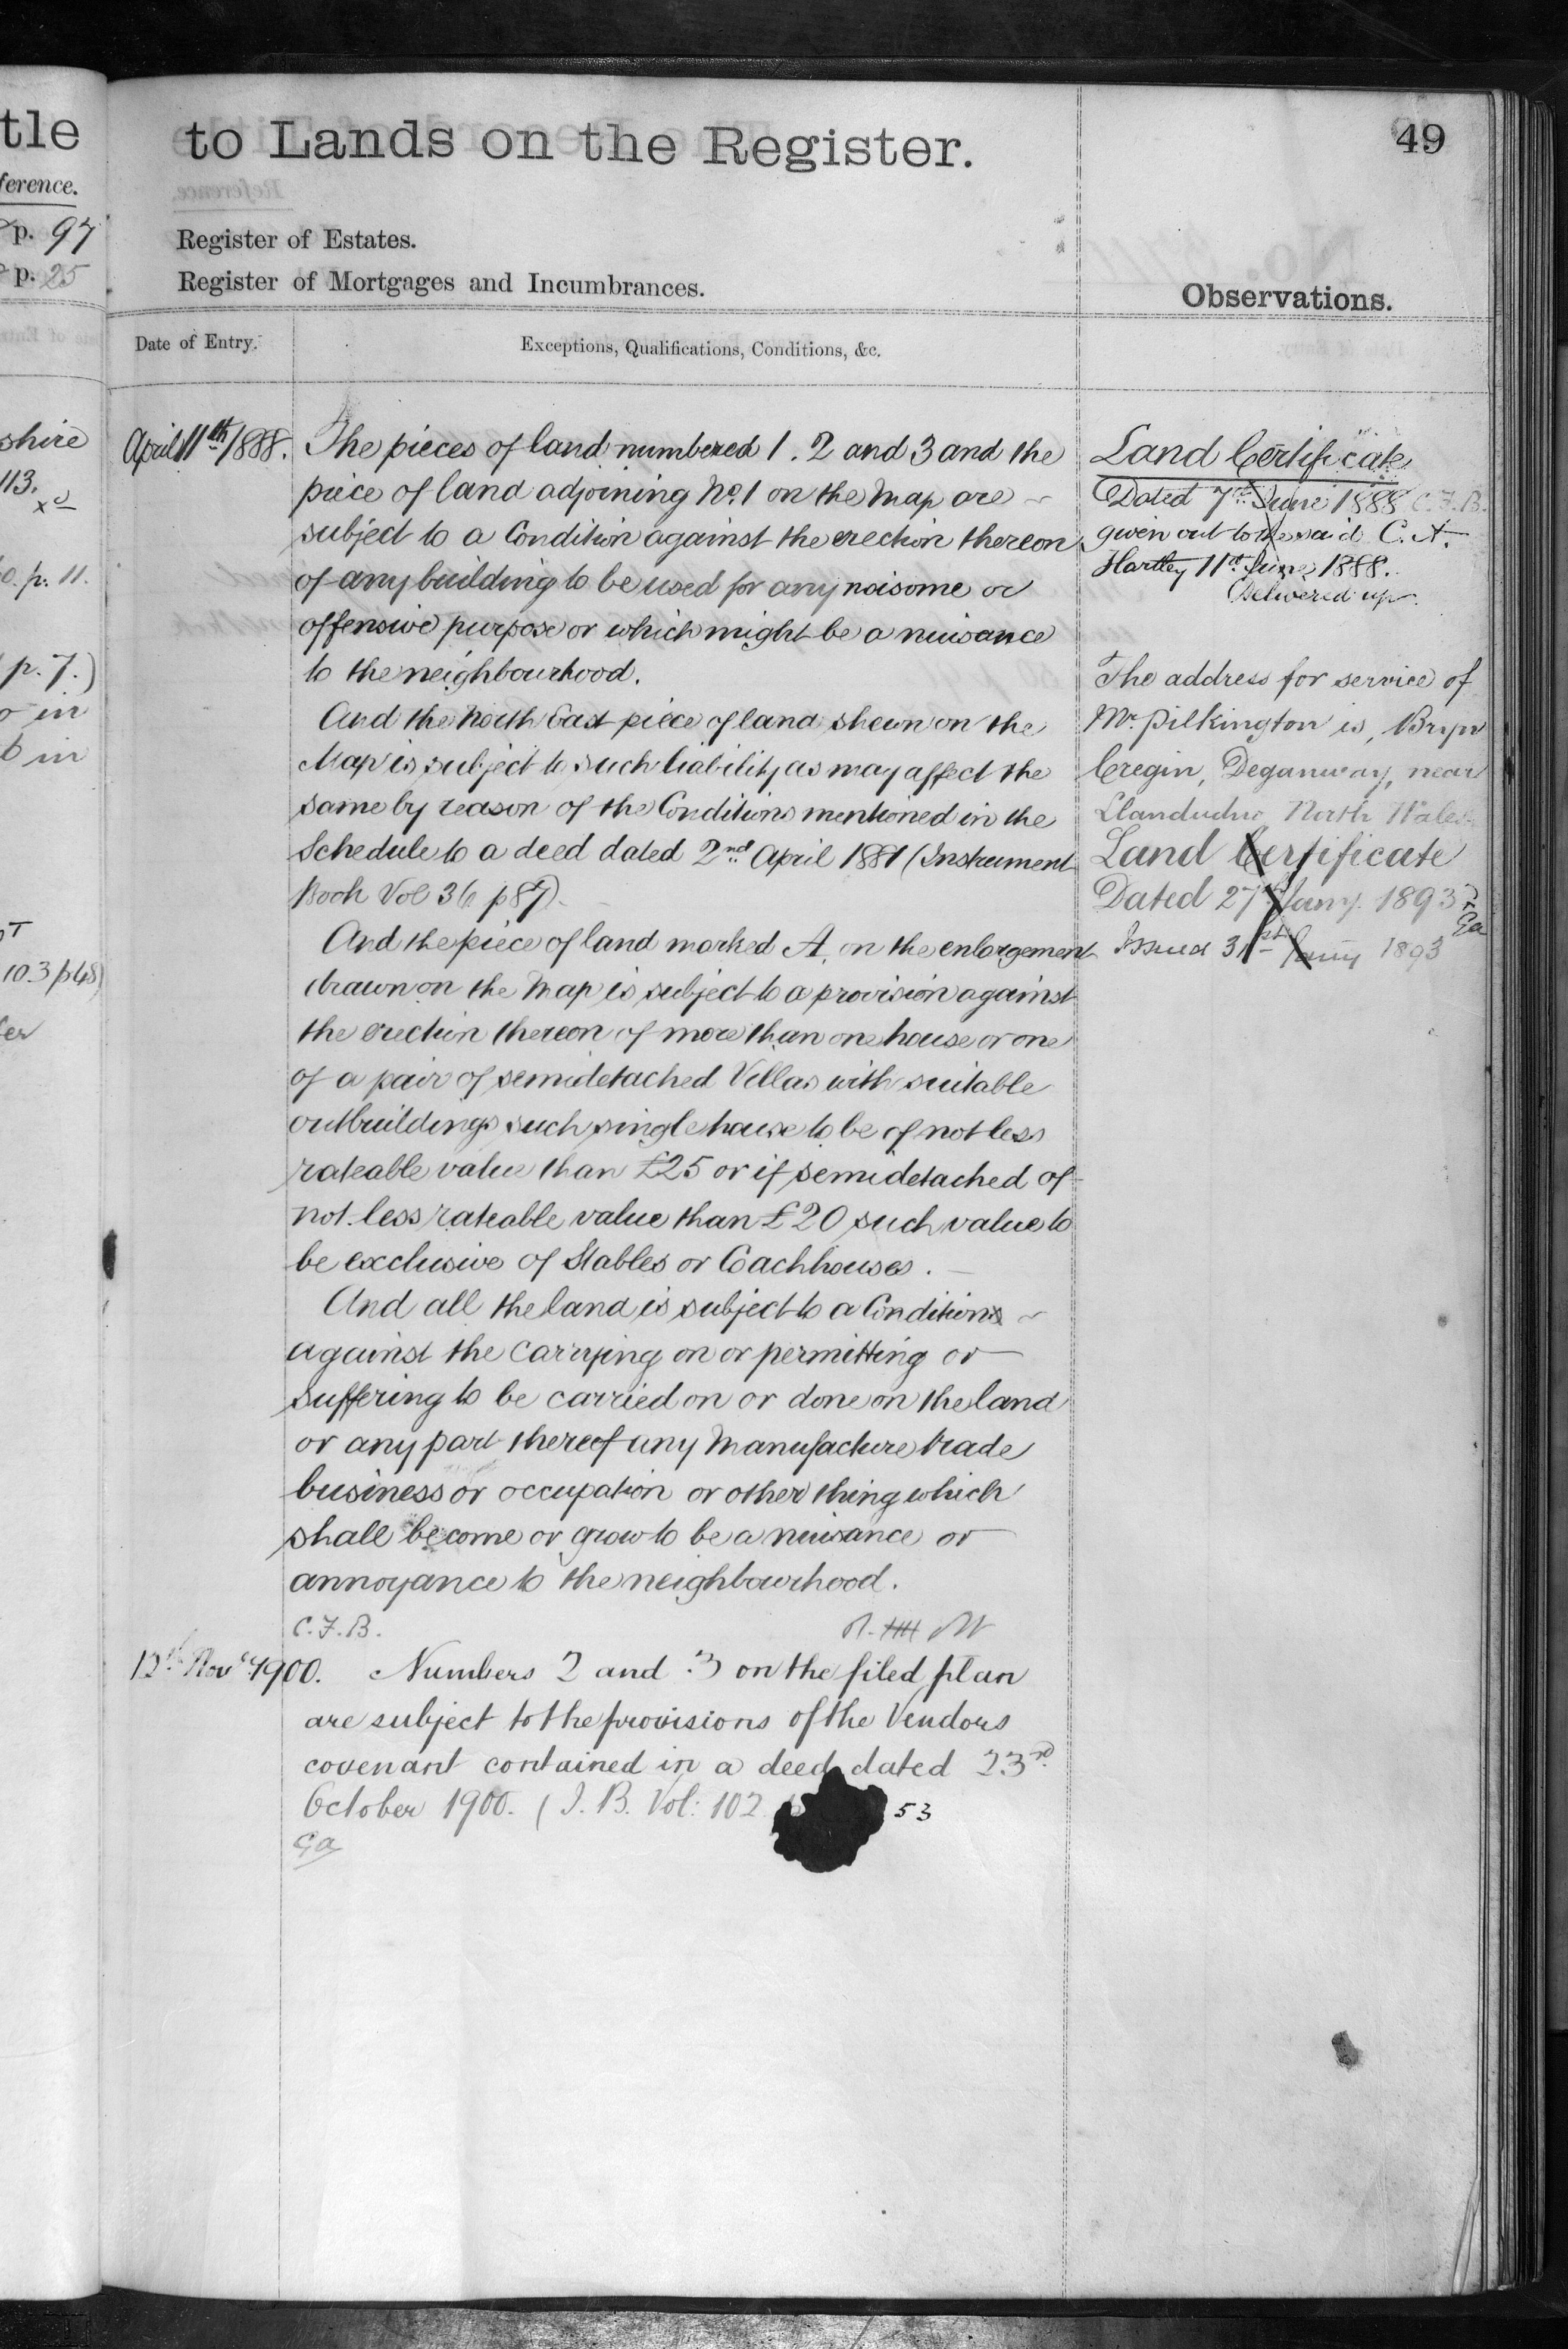 tle
ference.
p. 97
p. 25
shire
113.
0. p. 11.
p. 7.)
o in
b in
10.3 p48)
to Lands on the Register.
49
Register of Estates.
Register of Mortgages and Incumbrances.
Observations.
Date of Entry.
Exceptions, Qualifications, Conditions, &c.
April 11th 1888.
The pieces of land numbered 1. 2 and 3 and the
piece of land adjoining No. 1 on the Map are
subject to a Condition against the erection thereon
of any building to be used for any noisome or
offensive purpose or which might be a nuisance
to the neighbourhood.
And the North East piece of land shewn on the
Map is subject to such liability as may affect the
same by reason of the Conditions mentioned in the
Schedule to a deed dated 2nd April 1881 (Instrument
Book Vol 36 p 87).
And the piece of land marked A. on the enlargement
drawn on the Map is subject to a provision against
the erection thereon of more than one house or one
of a pair of semidetached Villas with suitable
outbuildings such single house to be of not less
rateable value than £25 or if semidetached of
not less rateable value than £20 such value to
be exclusive of Stables or Coachhouses.
And all the land is subject to a Conditions
against the carrying on or permitting or
suffering to be carried on or done on the land
or any part thereof any Manufacture trade
business or occupation or other thing which
shall become or grow to be a nuisance or
annoyance to the neighbourhood.
C.F.B.
12th Novr 1900.
Numbers 2 and 3 on the filed plan
are subject to the provisions of the Vendors
covenant contained in a deed dated 23rd
October 1900. (I. B. Vol: 102 53
Ga
Land Certificate
Dated 7th June 1888 C.F.B.
given out to the said C. A.
Hartley 11th June 1888.
Delivered up.
The address for service of
Mr. Pilkington is, Bryn
Cregin, Deganway, near
Llandudno North Wales
Land Certificate
Dated 27th Jany. 1893
Ga
Issued 31st Jany 1893